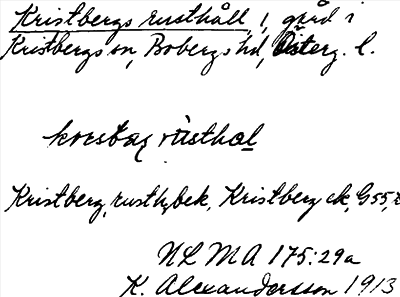 Kristbergs rusthåll, 1, gård i
Kristbergs sn, Bobergs hd, Österg. l.
korsbag rùsthal
Kristberg, rusth, bek, Kristberg ek, G55,
NLMA 175:29a
K. Alexandersson 1913